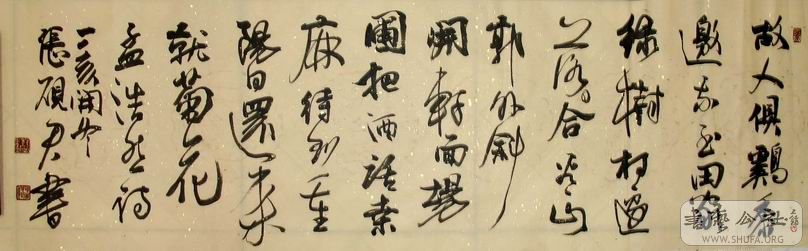 故人俱雞黍
邀我至田家
綠樹村邊
合青山
郭外斜
開軒面場
圃把酒話桑
麻待到重
陽日還來
就菊花
孟浩然詩
亥開冬
張碩書
書藝公社
WWW.SHUFA.ORG